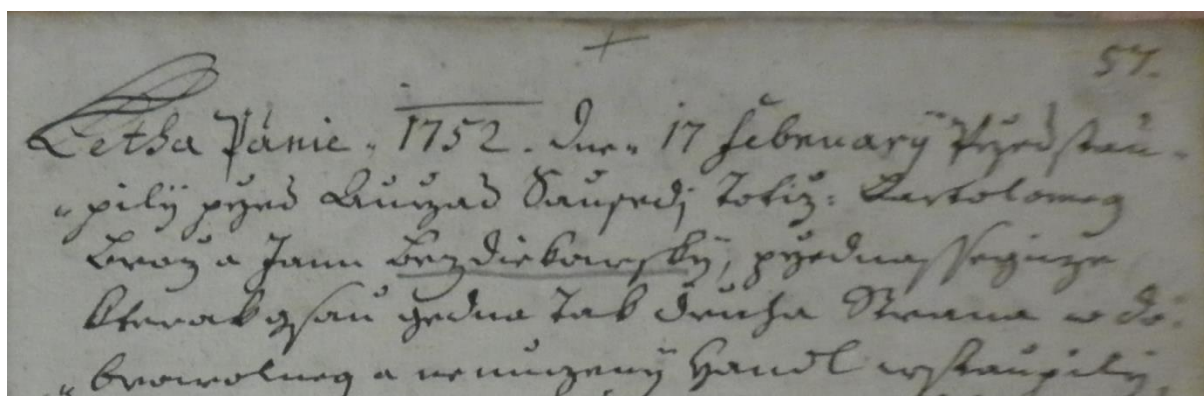 57.
Letha Panie. 1752. dne 17 February Przedstau-
pily przed Aurzad Sausedj Totiz: Bartolomeg
a Jann Bezdiekowsky, przednassegicze
kterak gsau gedna Tak druha Strana w do-
browolneg a nenuczeny Handl wstaupily,